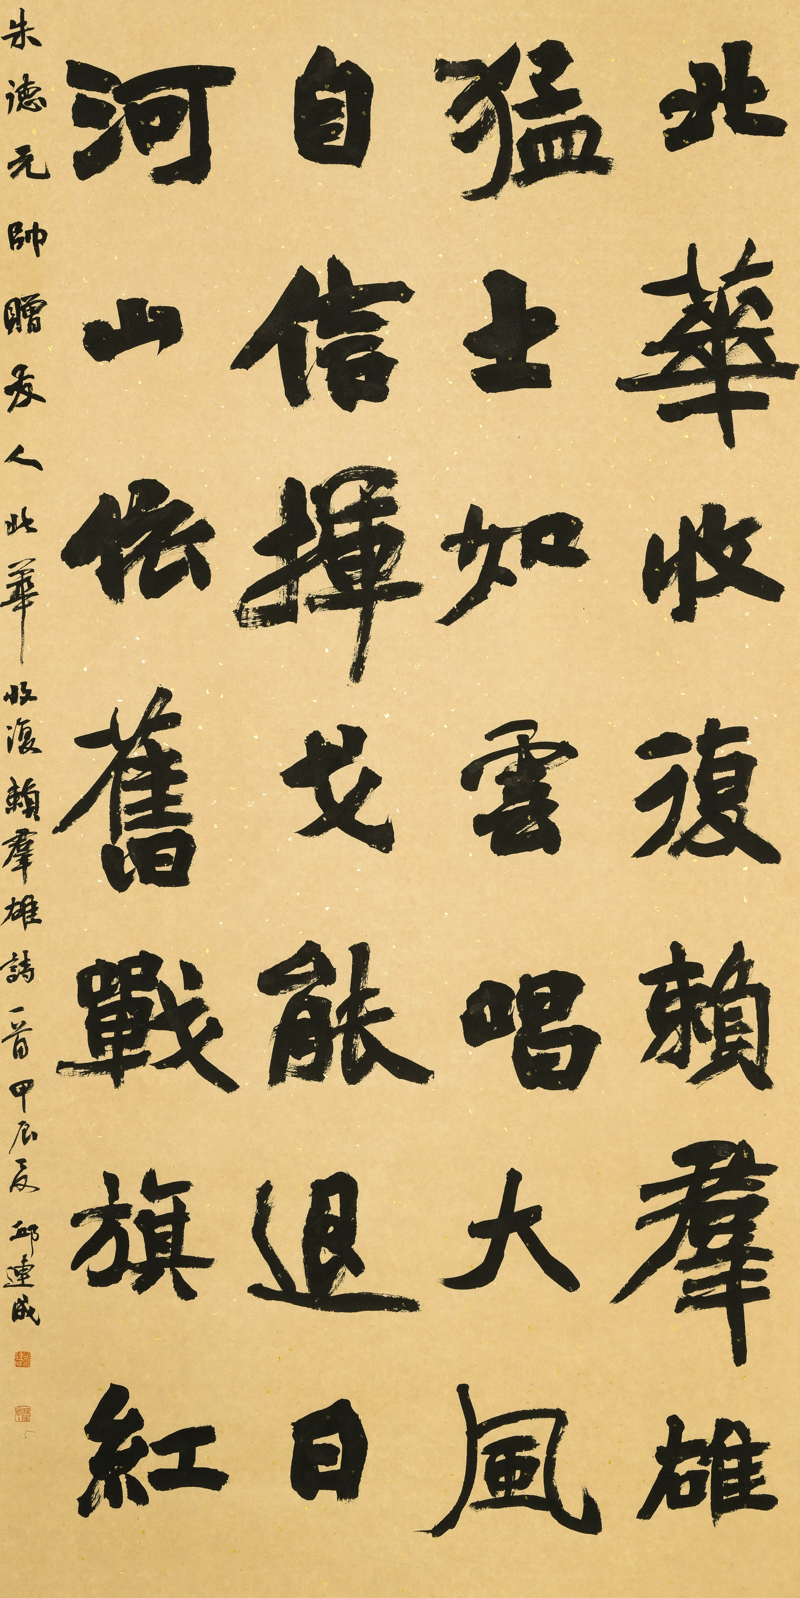 北華收復賴羣雄
猛士如雲唱大風
自信揮戈能退日
河山依舊戰旗紅
朱德元帥贈友人北華收復賴羣雄詩一首甲辰夏邱連成